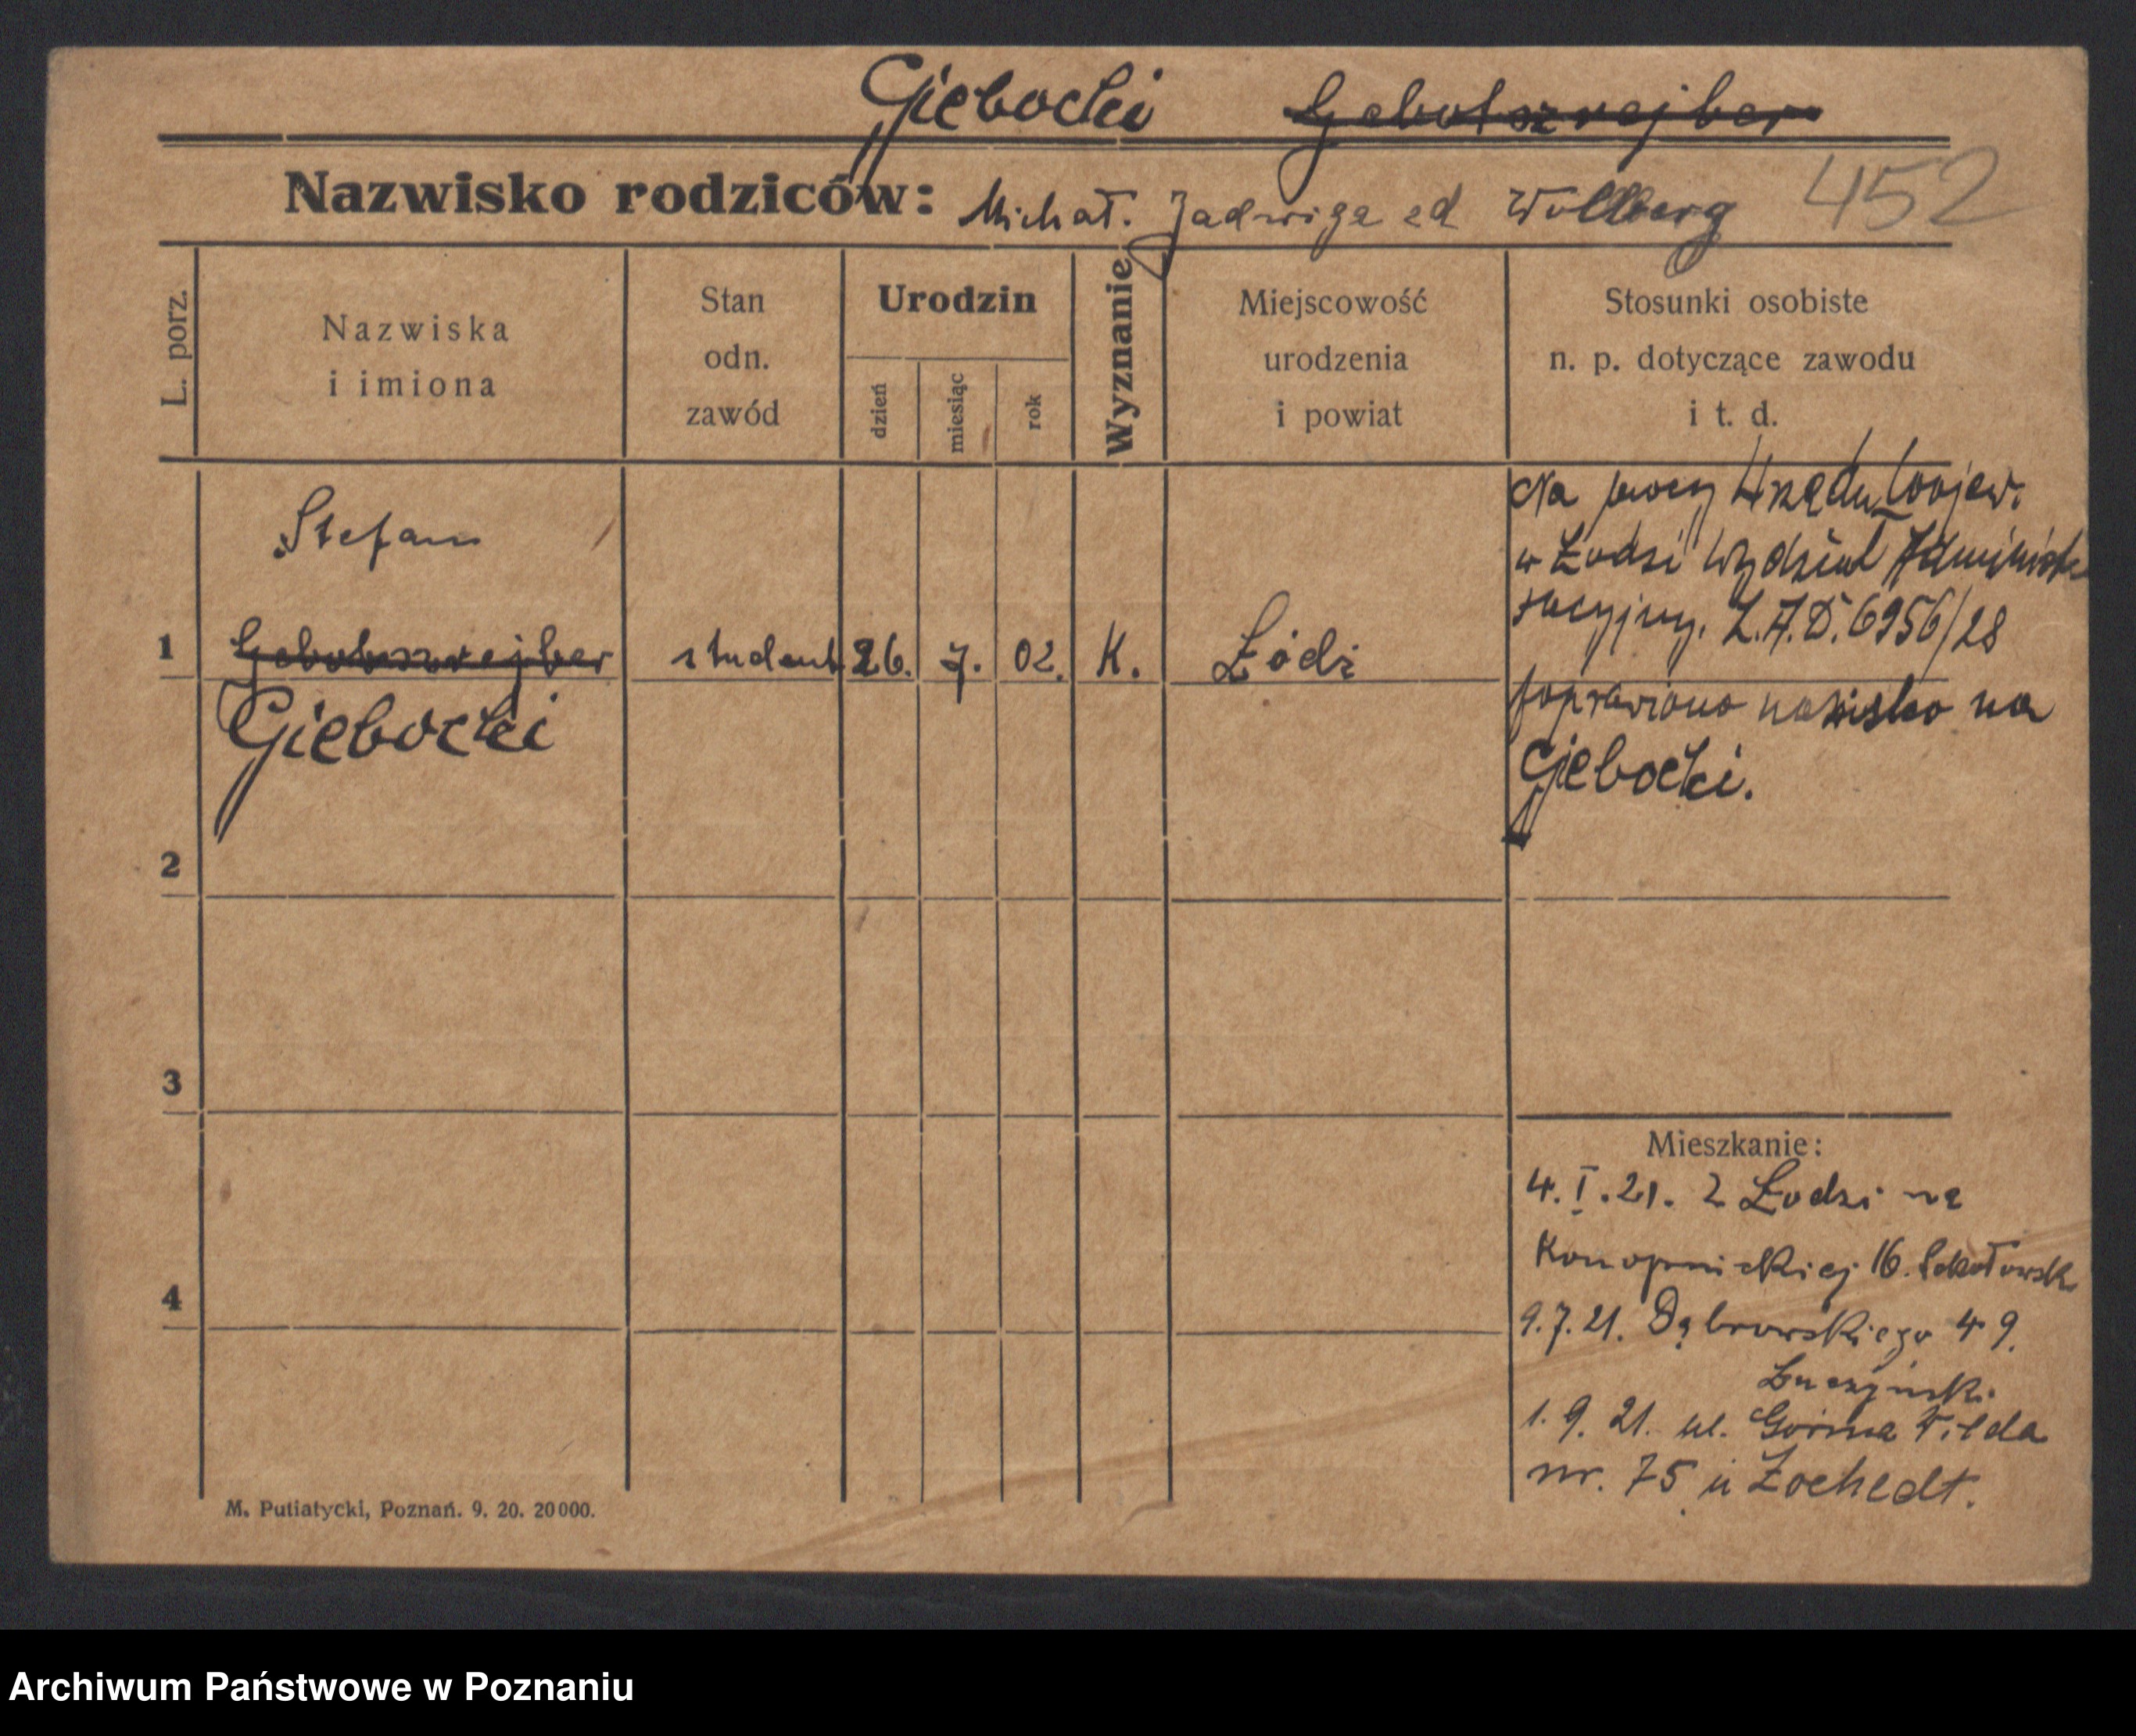 Giebocki Gebotszrejber
Nazwisko rodziców: Michał. Jadwiga Wollberg 452
L. porz.
Nazwiska
i imiona
Stan
odn.
zawód
Urodzin
dzień
miesiąc
rok
Wyznanie
Miejscowość
urodzenia
i powiat
Stosunki osobiste
n. p. dotyczące zawodu
i t. d.
Stefan
1 Gebotszrejber student 26. 7. 02. K. Łódź
Giebocki
Na mocy Urzędu Wojew.
w Łodzi Wydział Administ
racyjny. L.A.D. 6956/28
poprawiono nazwisko na
Giebocki.
2
3
4
Mieszkanie:
4. I. 21. z Łodzi na
Konopnickiej 16.
9. 7. 21. Dąbrowskiego 49.
1. 9. 21. ul. Górna Wilda
nr. 75 u
M. Putiatycki, Poznań. 9. 20. 20000.
Archiwum Państwowe w Poznaniu